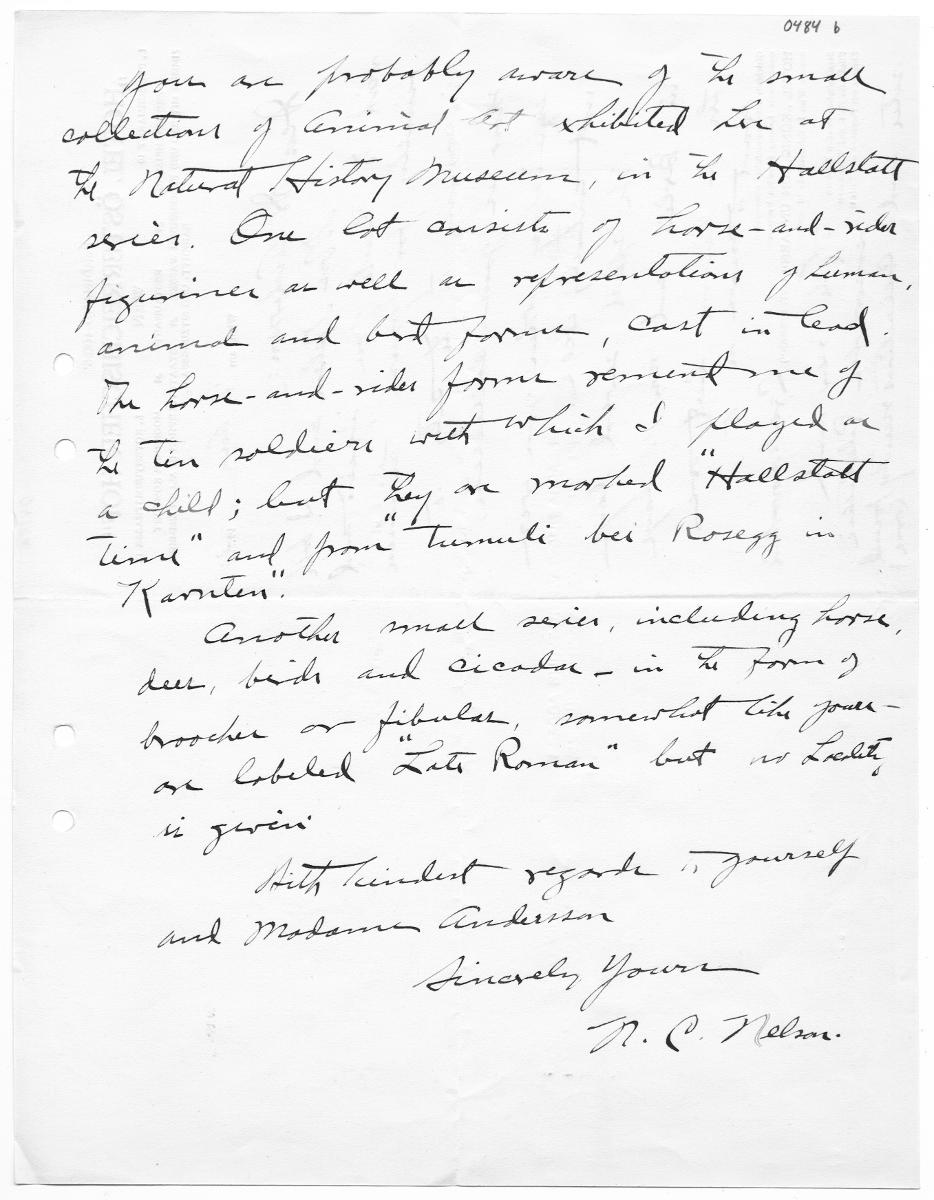 0484 b
You are probably aware of the small
collections of Animal Art exhibited here at
the Natural History Museum, in the Hallstatt
series. One lot consists of horse-and-rider
figurines as well as representations of human,
animal and bird forms, cast in lead.
The horse-and-rider forms remind me of
the tin soldiers with which I played as
a child; but they are marked "Hallstatt
time" and from "Tumuli bei Rosegg in
Karnten".
Another small series, including horse,
deer, birds and cicadas - in the form of
brooches or fibulas, somewhat like yours -
are labeled "Late Roman" but no Locality
is given.
With kindest regards to yourself
and Madame Andersson
Sincerely Yours
N. C. Nelson.